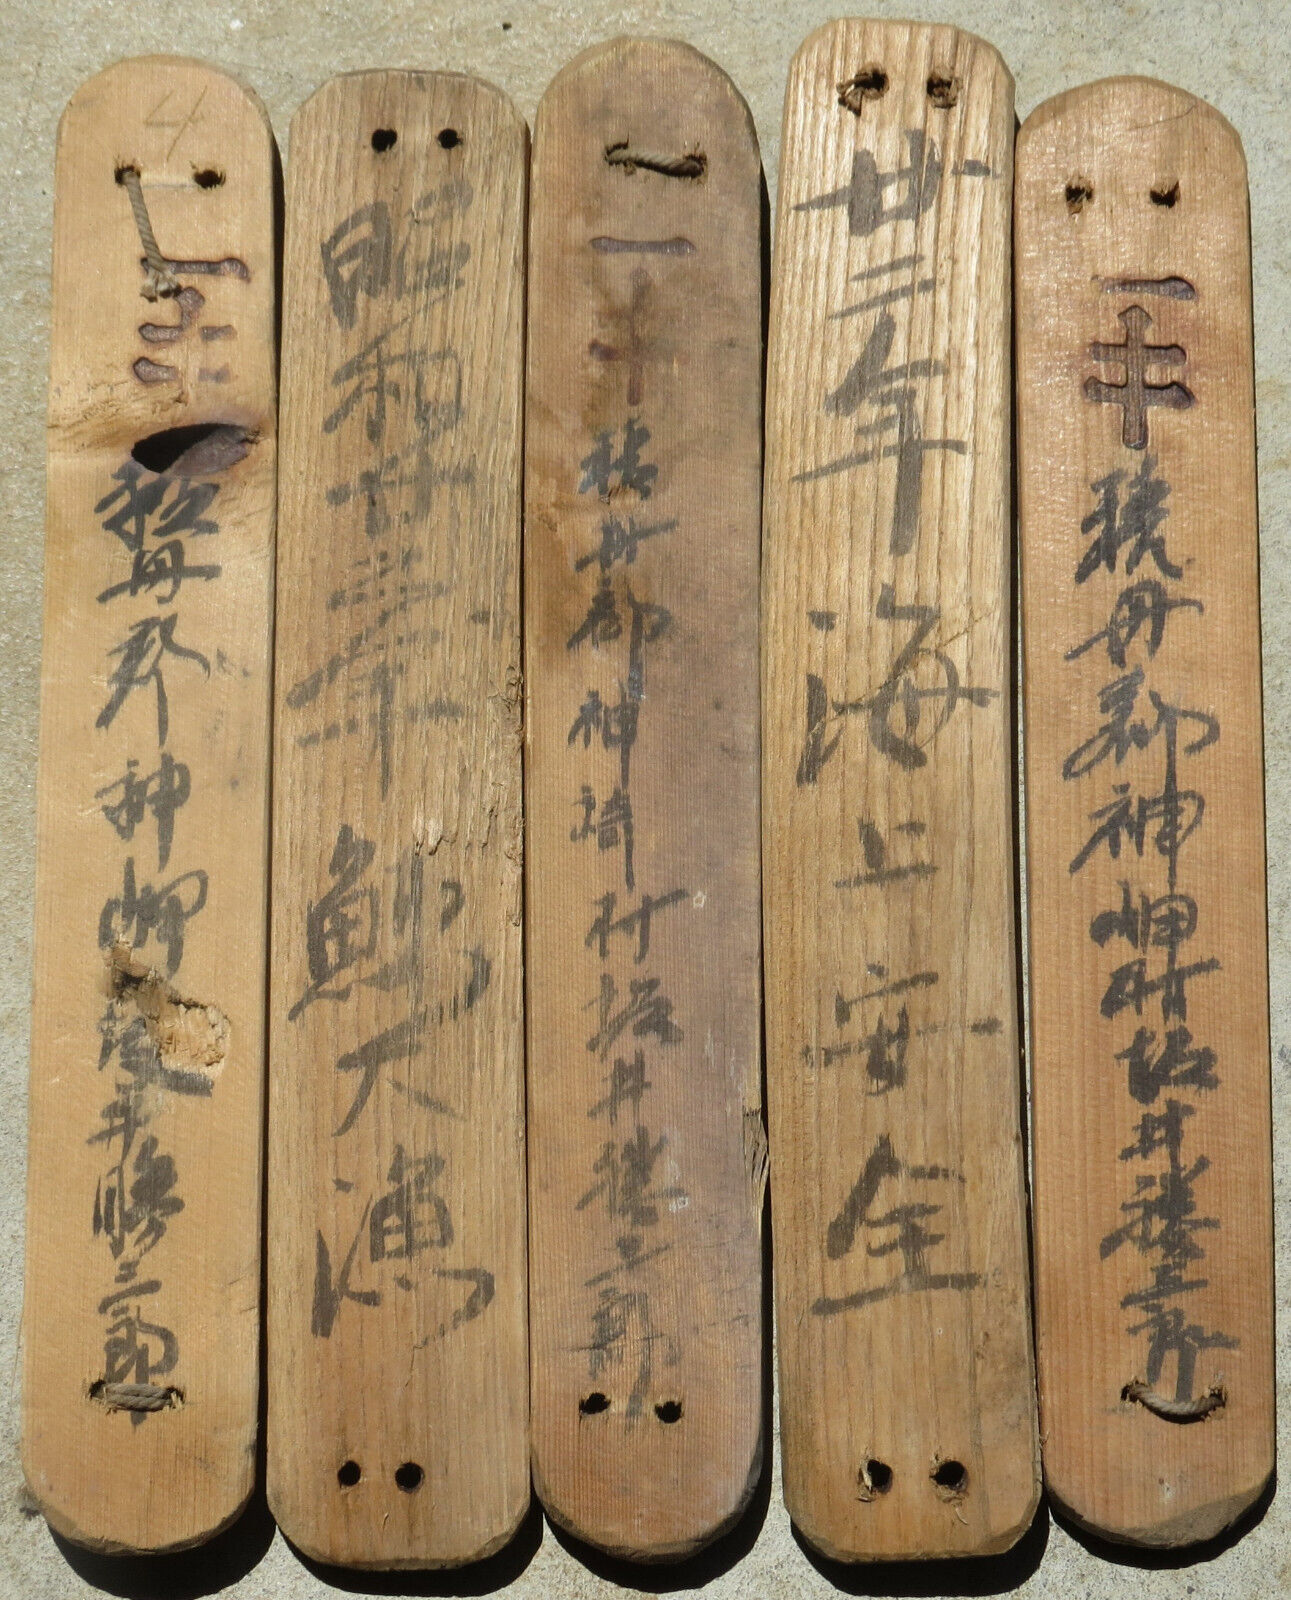 積丹郡神岬村坂井勝三郎
廿二年 海上安全
積丹郡神崎村坂井勝三郎
昭和廿三年 大漁
4
積丹郡神岬 坂井勝三郎